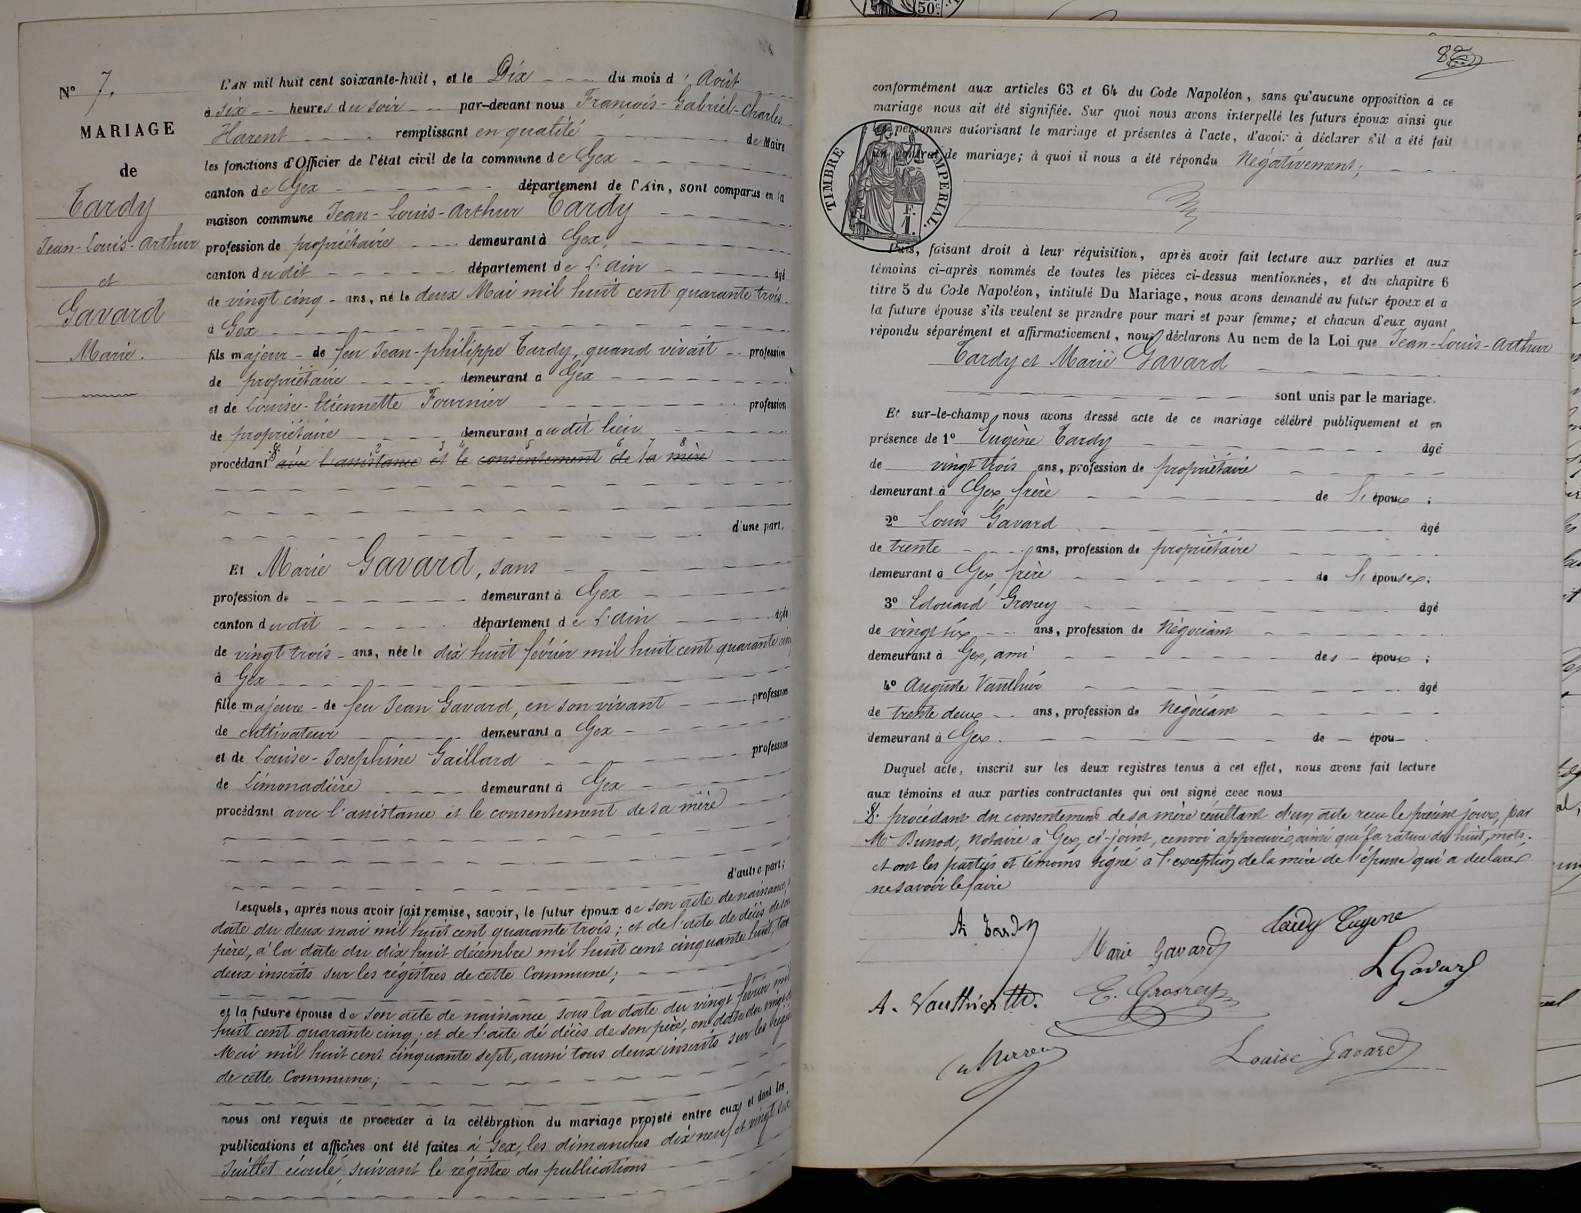 N° 7.
MARIAGE
de
Tardy
Jean-Louis-Arthur
et
Gavard
Marie.
L'AN mil huit cent soixante-huit, et le Dix du mois d'Août
à six heures du soir par-devant nous François-Gabriel-Charles
Harent remplissant en qualité de Maire
les fonctions d'Officier de l'état civil de la commune de Gex
canton de Gex département de l'Ain, sont comparus en la
maison commune Jean-Louis-Arthur Tardy
profession de propriétaire demeurant à Gex,
canton dudit département de L'ain âgé
de vingt cinq ans, né le deux Mai mil huit cent quarante trois
à Gex
fils majeur de feu Jean-philippe Tardy, quand vivait profession
de propriétaire demeurant à Gex
et de Louise-Etiennette Fournier profession
de propriétaire demeurant audit lieu
procédant avec l'assistance et le consentement de la mère
d'une part,
Et Marie Gavard, sans
profession de demeurant à Gex
canton dudit département de L'ain âgée
de vingt trois ans, née le dix huit février mil huit cent quarante cinq
à Gex
fille majeure de feu Jean Gavard, en son vivant profession
de cultivateur demeurant à Gex
et de Louise-Josephine Gaillard profession
de Limonadière demeurant à Gex
procédant avec l'assistance et le consentement de sa mère
d'autre part;
Lesquels, après nous avoir fait remise, savoir, le futur époux de son acte de naissance,
date du deux mai mil huit cent quarante trois; et de l'acte de décès de son
père, à la date du dix huit décembre mil huit cent cinquante huit, tous
deux inscrits sur les régistres de cette Commune;
et la future épouse de son acte de naissance sous la date du vingt février mil
huit cent quarante cinq, et de l'acte de décès de son père, en date du vingt
Mai mil huit cent cinquante sept, aussi tous deux inscrits sur les
de cette Commune;
nous ont requis de procéder à la célébration du mariage projeté entre eux, et dont les
publications et affiches ont été faites à Gex, les dimanches dix neuf et vingt six
Juillet écoulé, suivant le régistre des publications
conformément aux articles 63 et 64 du Code Napoléon, sans qu'aucune opposition à ce
mariage nous ait été signifiée. Sur quoi nous avons interpellé les futurs époux ainsi que
les personnes autorisant le mariage et présentes à l'acte, d'avoir à déclarer s'il a été fait
un contrat de mariage; à quoi il nous a été répondu Négativement;
TIMBRE IMPERIAL
F.
1.
Puis, faisant droit à leur réquisition, après avoir fait lecture aux parties et aux
témoins ci-après nommés de toutes les pièces ci-dessus mentionnées, et du chapitre 6
titre 5 du Code Napoléon, intitulé Du Mariage, nous avons demandé au futur époux et à
la future épouse s'ils veulent se prendre pour mari et pour femme; et chacun d'eux ayant
répondu séparément et affirmativement, nous déclarons Au nom de la Loi que Jean-Louis-Arthur
Tardy et Marie Gavard
sont unis par le mariage.
Et sur-le-champ nous avons dressé acte de ce mariage célébré publiquement et en
présence de 1° Eugène Tardy âgé
de vingt trois ans, profession de propriétaire
demeurant à Gex frère de l'époux ;
2° Louis Gavard âgé
de trente ans, profession de propriétaire
demeurant à Gex, frère de l'épouse;
3° Edouard Grosrey âgé
de vingt six ans, profession de Négociant
demeurant à Gex, ami des époux ;
4° Auguste Vauthier âgé
de trente deux ans, profession de Négociant
demeurant à Gex. de épou
Duquel acte, inscrit sur les deux registres tenus à cet effet, nous avons fait lecture
aux témoins et aux parties contractantes qui ont signé avec nous
procédant du consentement de sa mère résultant d'un acte recu le présent jour, par
Me Bunod, Notaire à Gex, ci-joint, renvoi approuvé, ainsi que la rature de huit mots.
et ont les parties et témoins signé à l'exception de la mère de l'épouse qui a déclaré
ne savoir le faire
A. Tardy
Marie Gavard
Tardy Eugène
L Gavard
A. Vauthier
E. Grosrey
Ch Harent
Louise Gavard